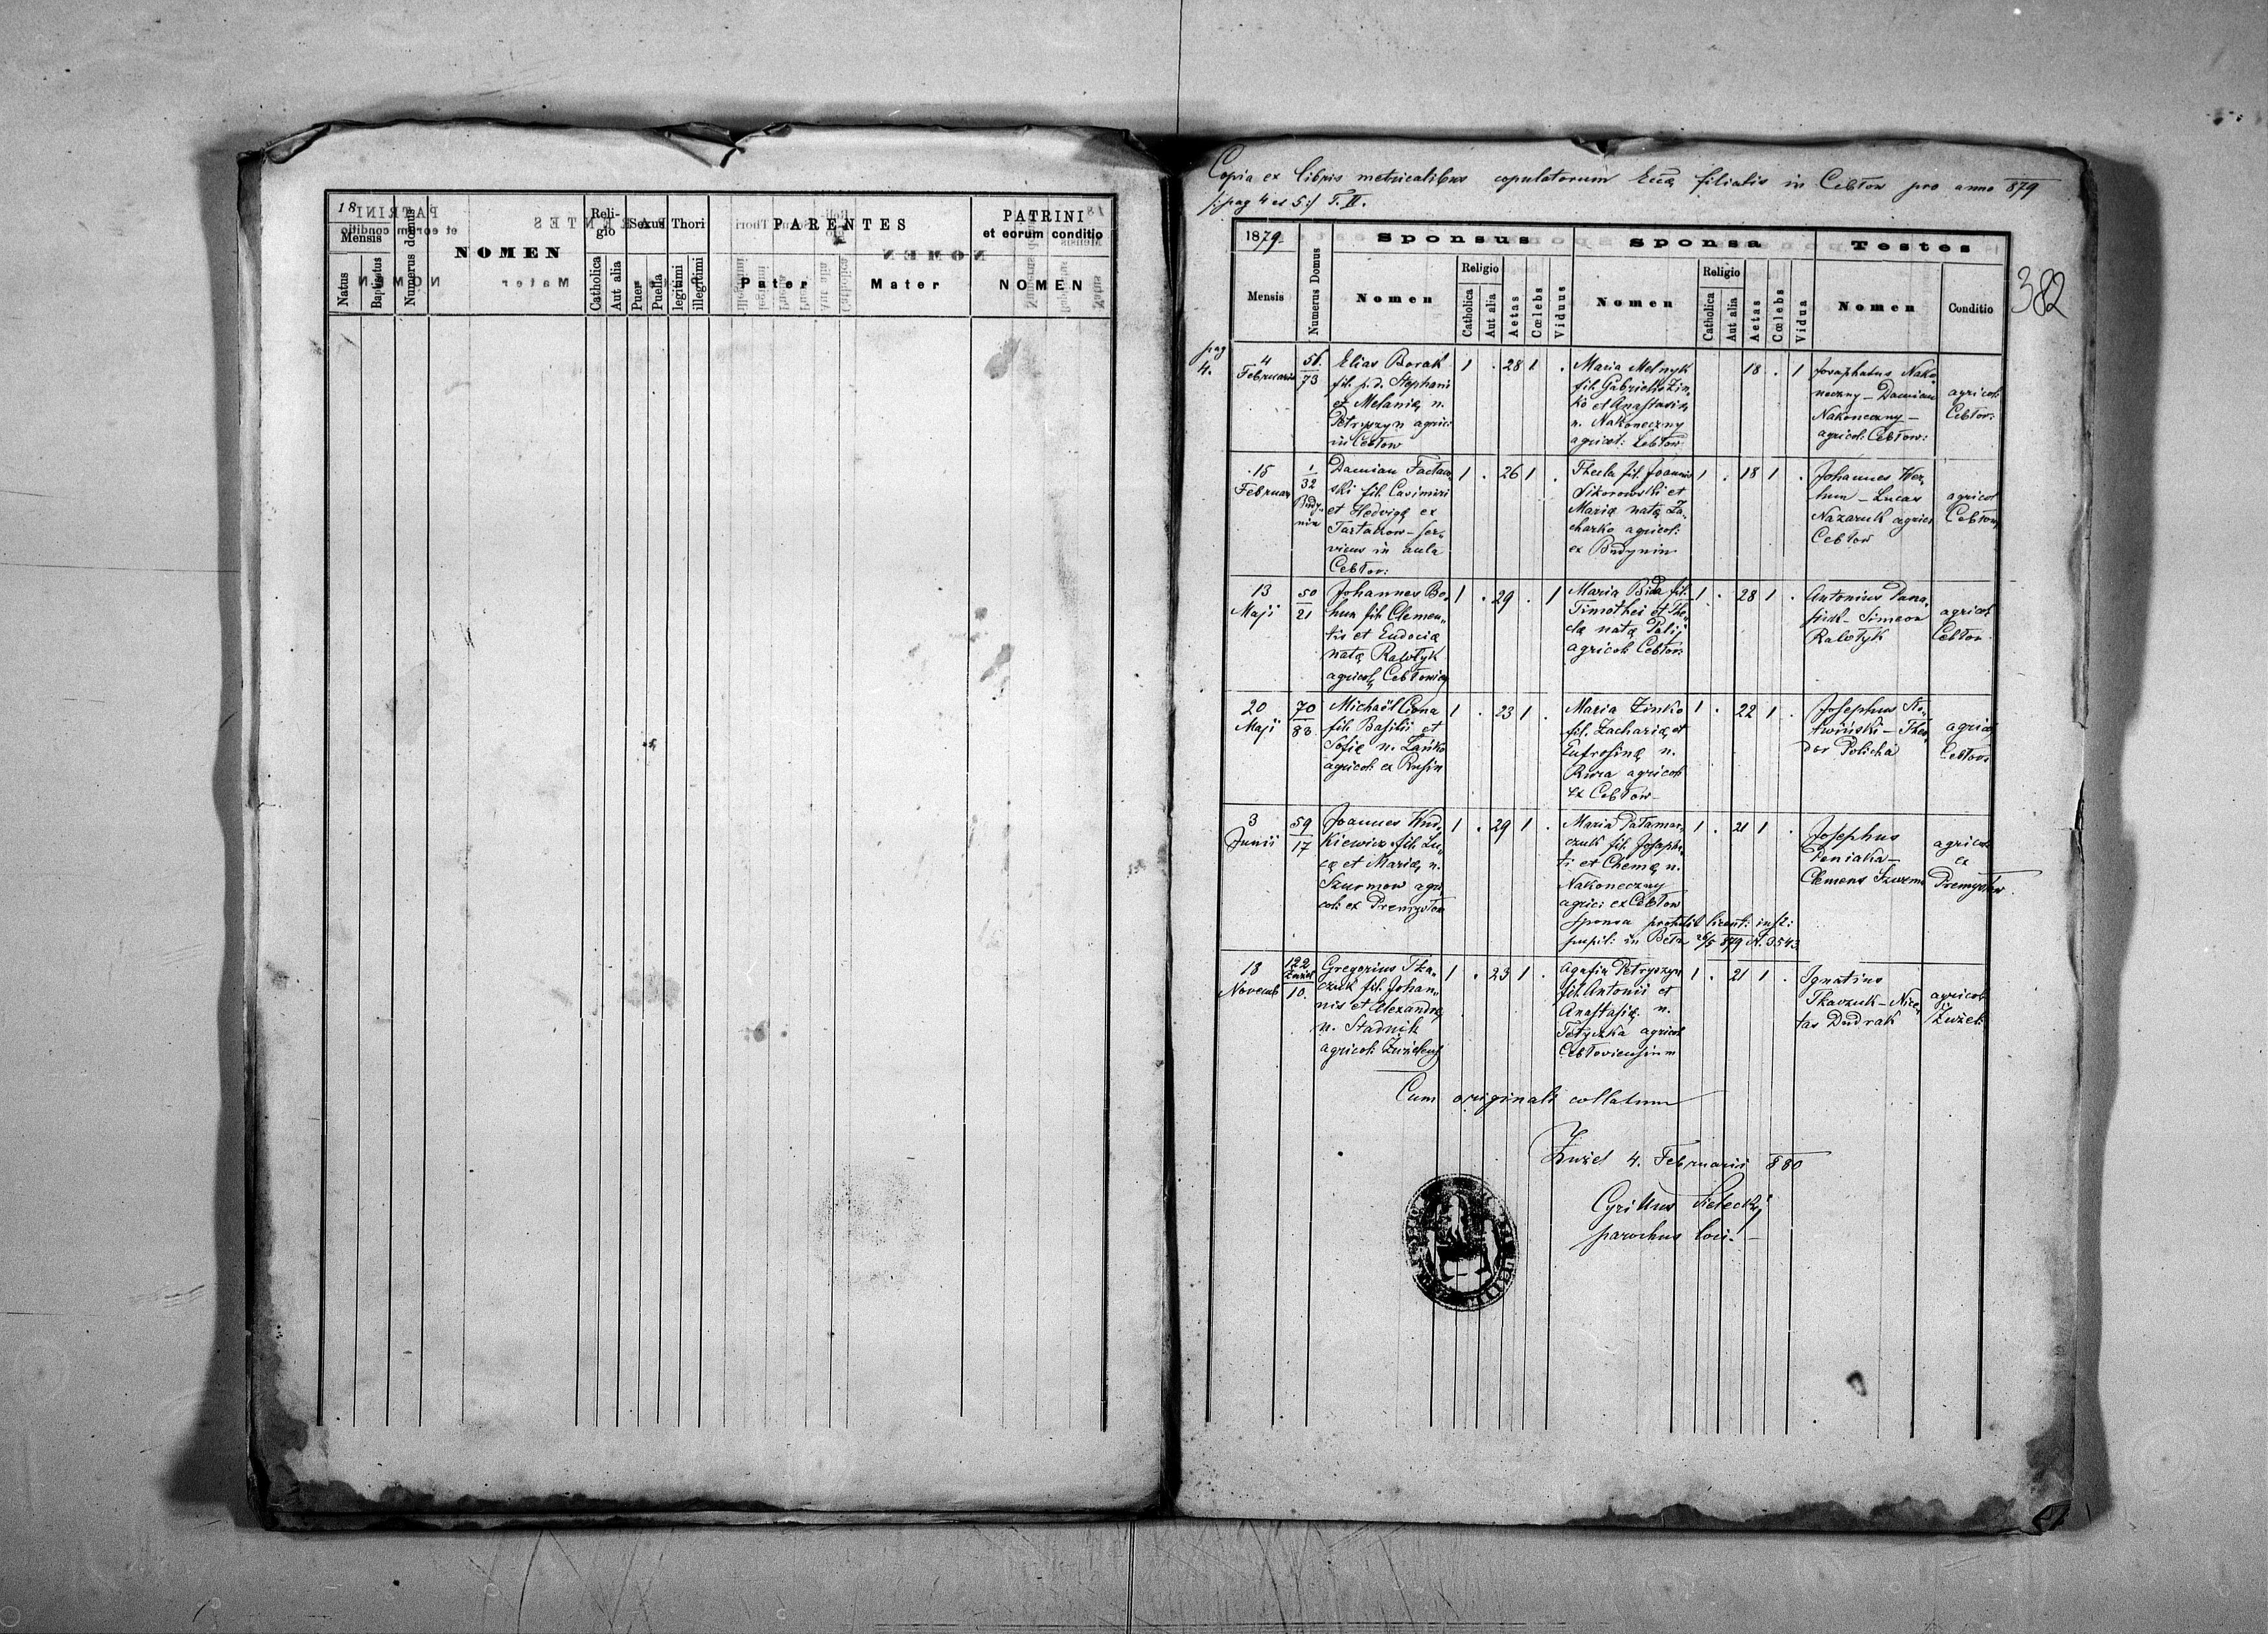 18
Mensis
Natus
Baptisatus
Numerus domus
NOMEN
Religio
Catholica
Aut alia
Sexus
Puer
Puella
Thori
legitimi
illegitimi
PARENTES
Pater
Mater
PATRINI
et eorum conditio
NOMEN
Copia ex libris metricalibus copulatorum Eccl. filialis in Cebłow pro anno 879
/: pag 4 et 5 :/ T. II.
382
1879
Mensis
Numerus Domus
Sponsus
Nomen
Religio
Catholica
Aut alia
Aetas
Cœlebs
Viduus
Sponsa
Nomen
Religio
Catholica
Aut alia
Aetas
Cœlebs
Vidua
Testes
Nomen
Conditio
pag
4.
4
Februarii
51
73
Elias Borak
fil. p. d. Stephani
et Melaniæ n.
Petryszyn agric:
in Cebłow
1 . 28 1 .
Maria Melnyk
fil. Gabrielis Zin-
ko et Anastasiæ
n. Nakoneczny
agricol: Cebłow
18 . 1
Josaphatus Nako-
neczny – Damian
Nakoneczny –
agricol: Cebłow:
agricol
Cebłow:
15
Februar
1
32
Budy-
nin
Damian
ski fil. Casimiri
et Hedvigæ ex
Tartakow – ser-
viens in aula
Cebłow:
1 . 26 1 .
Thecla fil. Joannis
Sikorowski et
Mariæ natæ Za-
charko agricol:
ex Budynin
1 . 18 1 .
Johannes Wer-
hun – Lucas
Nazaruk agric:
Cebłow
agricol
Cebłow
13
Maji
50
21
Johannes Bo-
hun fil. Clemen-
tis et Eudociæ
natæ Rabłyk
agricol:
1 . 29 . 1
Maria Bida fil.
Timothei et The-
clæ natæ Palij
agricol: Cebłow:
1 . 28 1 .
Antonius Pana-
siuk – Simeon
Rabłyk
agricol
Cebłow
20
Maji
70
88
Michaël Ciona
fil. Basilii et
Sofiæ n. Zańko
agricol: ex Rusin
1 . 23 1 .
Maria Zinko
fil. Zachariæ et
Eufrosinæ n.
Rura agricol:
ex Cebłow
1 . 22 1 .
Josephus Ko-
twiński – Theo-
dor Policha
agricol
Cebłow
3
Junii
59
17
Joannes Kud-
kiewicz fil. Lu-
cæ et Mariæ n.
Szurmow agri-
col: ex Premysłow
1 . 29 1 .
Maria Pałamar-
czuk fil. Josapha-
ti et Chemæ n.
Nakoneczny
agric: ex Cebłow
sponsa protulit licent: inst:
pupil: in Bełz 26/5 879 N. 3543
1 . 21 1 .
Josephus
Peniaka –
Clemens
agricol:
ex
Premysłow
18
Novemb
122
Żużel
10.
Gregorius Tka-
czuk fil. Johan-
nis et Alexandræ
n. Stadnik
agricol:
1 . 23 1 .
Agafia Petryszyn
fil. Antonii et
Anastasiæ n.
Tetyczka agricol:
Cebłoviensium
1 . 21 1 .
Ignatius
Tkaczuk – Nice-
tas Dudrak
agricol
Żużel:
Cum originali collatum
Żużel 4. Februarii 880
Cyrillus Sielecki
parochus loci. –